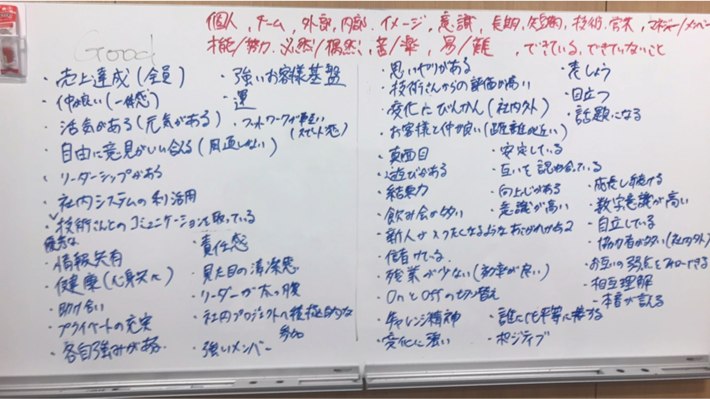 Good
個人、チーム、外部、内部、イメージ、意識、長期、短期、技術、営業、マネジャー/メンバー
才能/努力、必然/偶然、苦/楽、易/難、できている、できていないこと
・売上達成(全員)
・仲が良い(一体感)
・活気がある(元気がある)
・自由に意見がいい合える(風通しがいい)
・リーダーシップがある
・社内システムの利活用
・技術さんとのコミュニケーションを取っている
優秀な
・情報共有
・健康(心身共に)
・助け合い
・プライベートの充実
・各自強みがある
・強いお客様基盤
・運
・フットワークが軽い
(スピード感)
・責任感
・見た目の清潔感
・リーダーが太っ腹
・社内プロジェクトへ積極的な
参加
・強いメンバー
・思いやりがある
・技術さんからの評価が高い
・変化にびんかん(社内外)
・お客様と仲が良い(距離が近い)
・真面目
・遊びがある
・結束力
・飲み会が多い
・新人が入りたくなるような
・儲けている
・残業が少ない(効率が良い)
・OnとOffの切り替え
・チャレンジ精神
・変化に強い
・表しょう
・目立つ
・話題になる
・安定している
・互いを認め合っている
・向上心がある
・意識が高い
・誰にでも平等に接する
・ポジティブ
・成長し続ける
・数字意識が高い
・自立している
・協力者が多い(社内外)
・お互いの弱点をフォローできる
・相互理解
・本音が言える